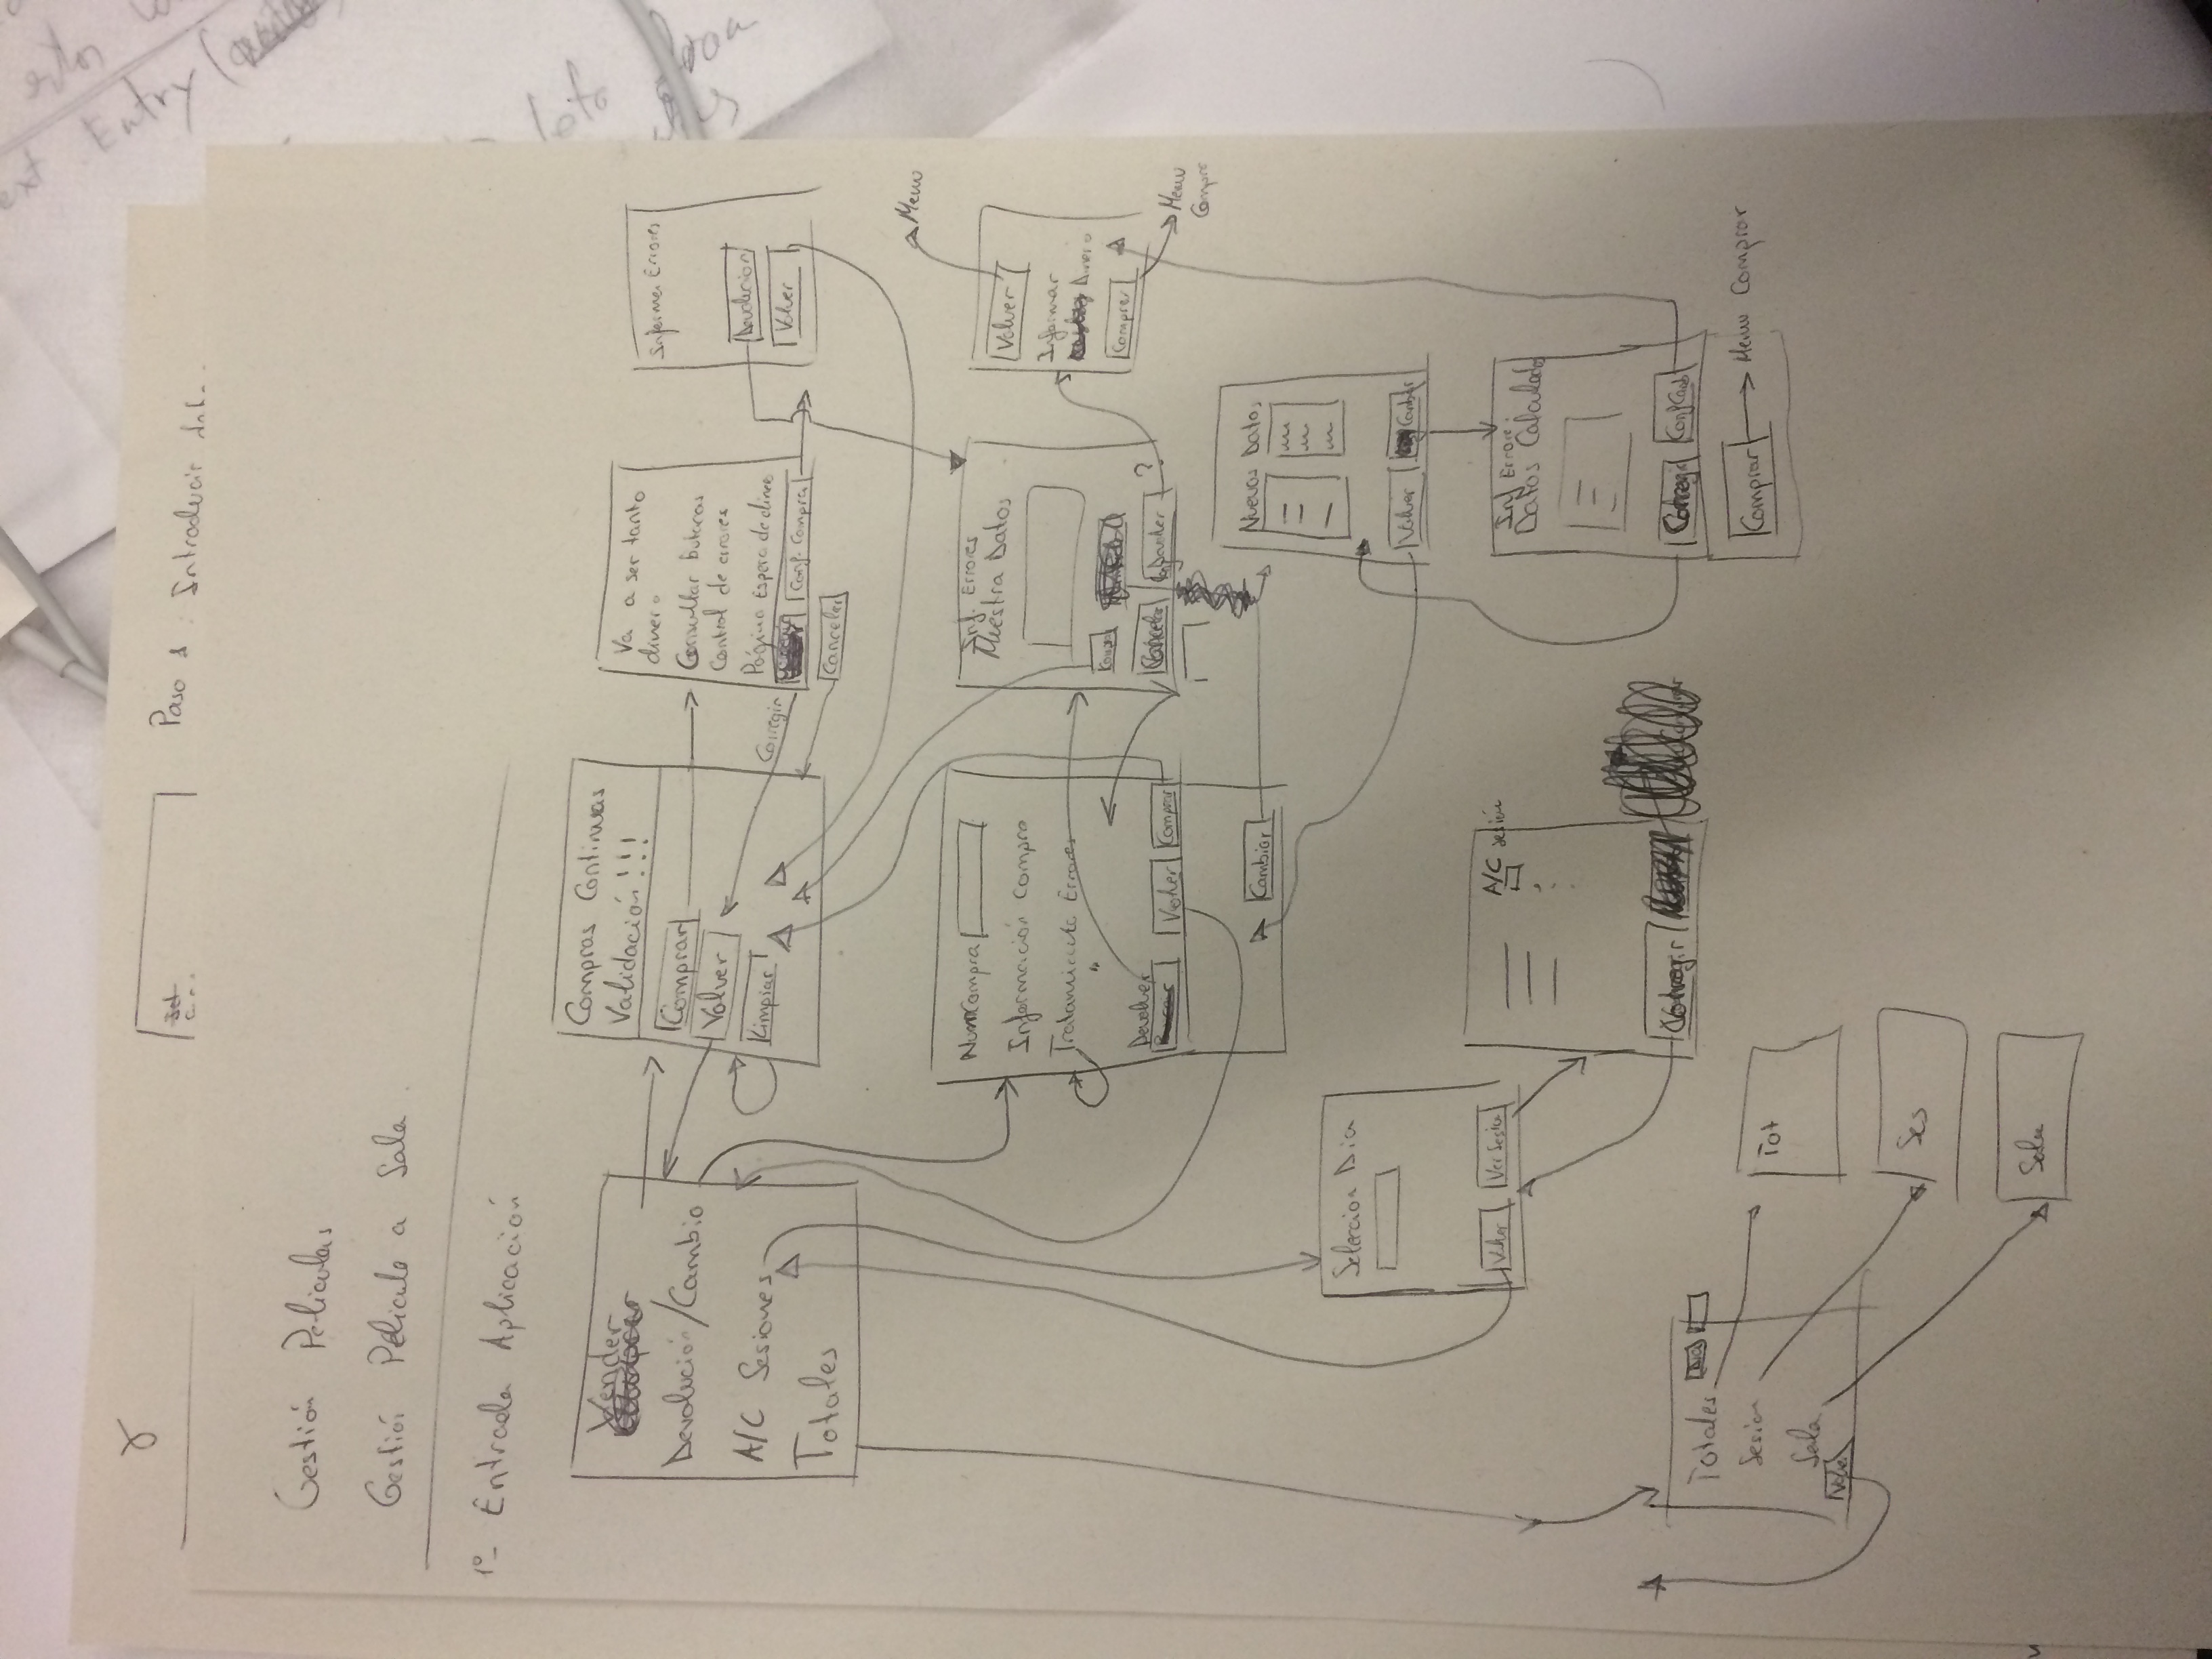 Paso 1: Introducir
Entry
Gestión Peliculas
Gestión Pelicula a Sala
1º- Entrada Aplicación
Vender
Devolución/Cambio
A/C Sesiones
Totales
Compras Continuas
Validación!!!
Comprar
Volver
Limpiar
Va a ser tanto
dinero
Consultar butacas
Control de errores
Página Espera de dinero
Corregir
Conf. Compra
Cancelar
Informa Errores
Devolucion
Volver
Menu
NumCompra
Información compra
Tratamiento Errores
"
Devolver
Volver
Comprar
Cambiar
Inf. Errores
Muestra Datos
Cancelar
Devolver
?
Volver
Informar
Dinero
Comprar
Menu
Compra
Nuevos Datos
Volver
Cambiar
Seleccion Dia
Volver
Ver Sesion
A/C sesión
Corregir
Inf Errores
Datos Calculado
Corregir
Conf Camb
Comprar
Menu Comprar
Totales
Sesion
Sala
Volver
Tot
Ses
Sala